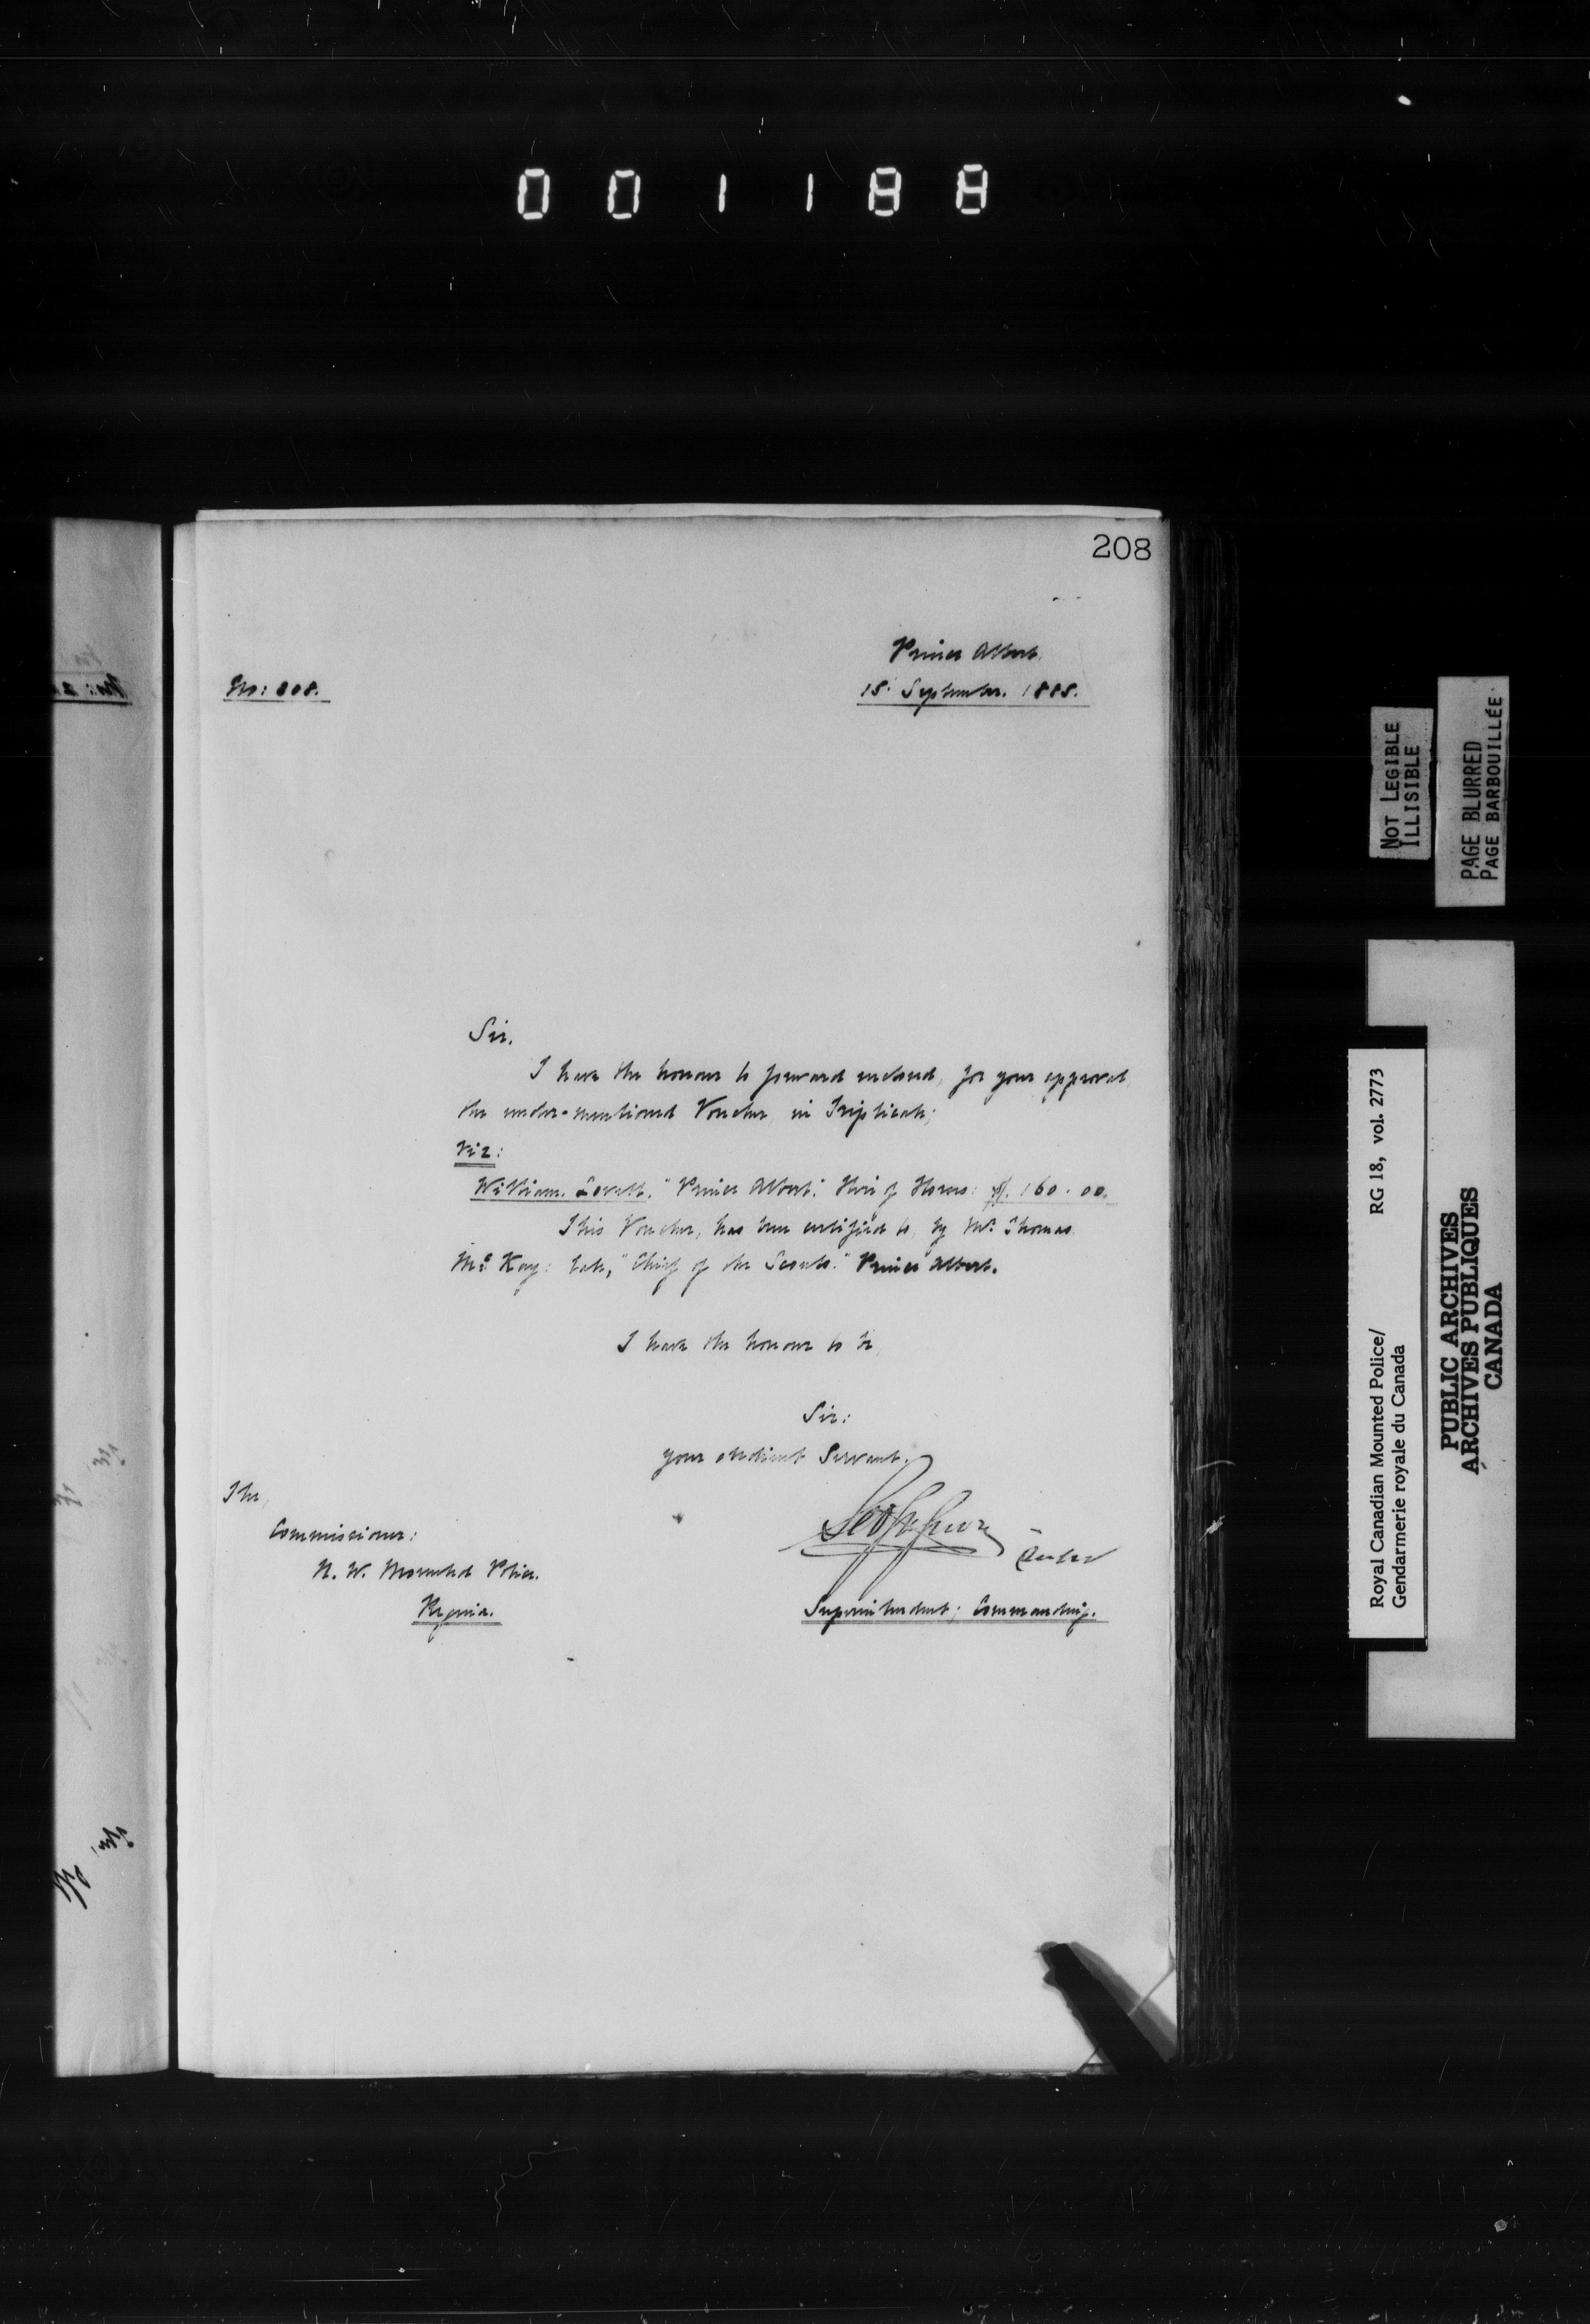 001188
208
Prince Albert.
No: 208.
15 September. 1885.
Sir.
I have the honour to forward enclosed, for your approval,
the under-mentioned Voucher, in Triplicate;
Viz:
William. Lovell. "Prince Albert." Hire of Horses: $. 160.00.
This Voucher, has been certified to, by Mr. Thomas
McKay: late, "Chief of the Scouts." Prince Albert.
I have the honour to be,
Sir:
your obedient Servant.
The,
Commissioner:
N. W. Mounted Police.
Regina.
Superintendent; Commanding.
NOT LEGIBLE
ILLISIBLE
PAGE BLURRED
PAGE BARBOUILLÉE
Royal Canadian Mounted Police/ RG 18, vol. 2773
Gendarmerie royale du Canada
PUBLIC ARCHIVES
ARCHIVES PUBLIQUES
CANADA